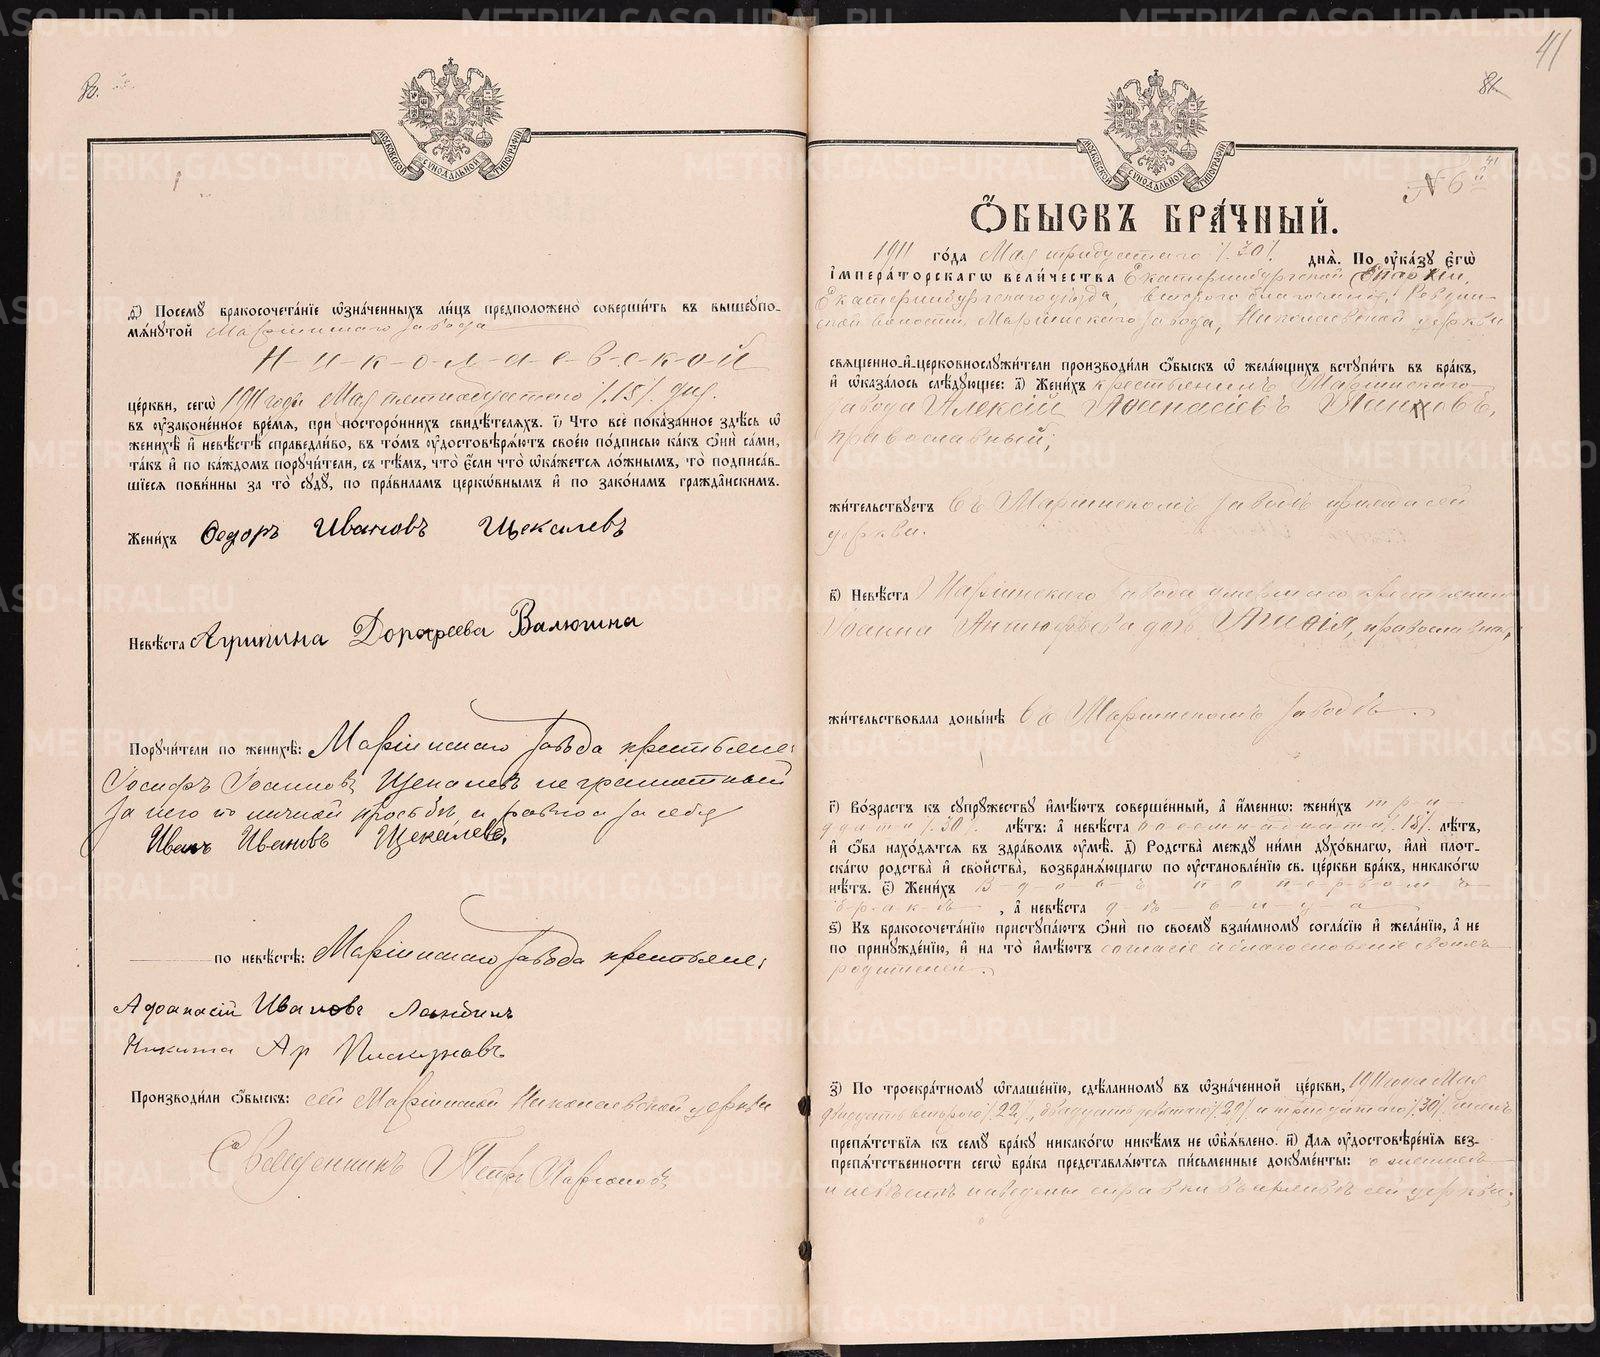 80.
МОСКОВСКОЙ СУНОДАЛЬНОЙ ТИПОГРАФИИ
д҃) Посемꙋ бракосочета́нїе ѡ҆зна́ченныхъ ли́цъ предположено̀ соверши́ть въ вышеꙋпо-
мѧ́нꙋтой Маріинскаго завода
Н-и-к-о-л-а-е-в-с-к-о-й
це́ркви, сегѡ̀ 1911 года Мая пятнадцатаго /.15/. дня.
въ ᲂу҆зако́ненное вре́мѧ, при посторо́ннихъ свидѣ́телѧхъ. і҃) Что̀ всѐ пока́занное здѣ́сь ѡ҆
женихѣ̀ и҆ невѣ́стѣ справедли́во, въ то́мъ ᲂу҆достовѣрѧ́ютъ свое́ю по́дписью ка́къ ѻ҆нѝ са́ми,
та́къ и҆ по ка́ждомъ порꙋчи́тели, съ тѣ́мъ, что̀ є҆́сли что̀ ѡ҆ка́жетсѧ ло́жнымъ, то̀ подписа́в-
шїесѧ пови́нны за то̀ сꙋдꙋ̀, по пра́виламъ церкѡ́внымъ и҆ по зако́намъ гражда́нскимъ.
Жени́хъ Ѳедоръ Ивановъ Щекалевъ
Невѣ́ста Агрипина Дорофеева Валюгина
Порꙋчи́тели по женихѣ̀: Маріинскаго завода крестьяне:
Іосифъ Іоанновъ Щекалевъ не грамотный
за него по личной просьбѣ, и равно и за себя
Иванъ Ивановъ Щекалевъ.
по невѣ́стѣ: Маріинскаго завода крестьяне:
Афонасій Ивановъ
Никита Ар Пискуновъ
Производи́ли ѻ҆́быскъ: сей Маріинской Николаевской церкви
Священникъ Петръ
41
81
МОСКОВСКОЙ СУНОДАЛЬНОЙ ТИПОГРАФИИ
41
N 6
Ѻ҆́БЫСКЪ БРА́ЧНЫЙ.
1911 го́да Мая тридцатаго /.30/. днѧ̀. По ᲂу҆ка́зꙋ Є҆гѡ̀
і҆мпера́торскагѡ вели́чества Екатеринбургской Епархіи,
Екатеринбургскаго уѣзда, второго благочинія, Ревдин-
ской волости, Маріинскаго завода, Николаевской церкви
свѧще́нно-и҆-церковнослꙋжи́тели производи́ли ѻ҆́быскъ ѡ҆ жела́ющихъ встꙋпи́ть въ бра́къ,
и҆ ѡ҆каза́лось слѣ́дꙋющее: а҃) Жени́хъ крестьянинъ Маріинскаго
завода Алексій Аѳанасіевъ Пановъ,
православный;
жи́тельствꙋетъ въ Маріинскомъ заводѣ прихода сей
церкви.
в҃) Невѣ́ста Маріинскаго завода умершаго крестьянина
Іоанна дочь православная;
жи́тельствовала доны́нѣ въ Маріинскомъ заводѣ.
г҃) Во́зрастъ къ сꙋпрꙋ́жествꙋ и҆мѣ́ютъ соверше́нный, а҆ и҆́меннѡ: жени́хъ три-
дцати /.30/. лѣ́тъ: а҆ невѣ́ста восемнадцати /.18/. лѣ́тъ,
и҆ ѻ҆́ба нахо́дѧтсѧ въ здра́вомъ ᲂу҆мѣ̀. д҃) Родства̀ междꙋ̀ ни́ми дꙋхо́внагѡ, и҆лѝ пло́т-
скагѡ родства̀ и҆ сво́йства, возбранѧ́ющагѡ по ᲂу҆становле́нїю св. це́ркви бра́къ, никако́гѡ
нѣ́тъ. є҃) Жени́хъ В-д-о-в-ъ п-о п-е-р-в-о-м-ъ
б-р-а-к-ѣ, а҆ невѣ́ста д-ѣ-в-и-ц-а
ѕ҃) Къ бракосочета́нїю пристꙋпа́ютъ ѻ҆нѝ по своемꙋ̀ взаи́мномꙋ согла́сїю и҆ жела́нїю, а҆ не
по принꙋжде́нїю, и҆ на то̀ и҆мѣ́ютъ согласіе и благословеніе своихъ
родителей.
з҃) По троекра́тномꙋ ѡ҆глаше́нїю, сдѣ́ланномꙋ въ ѡ҆зна́ченной це́ркви, 1911 года Мая
двадцать второго /.22/., двадцать девятаго /.29/. и тридцатаго /.30/. числъ
препѧ́тствїѧ къ семꙋ̀ бра́кꙋ никако́гѡ никѣ́мъ не ѡ҆б̾ѧ́влено. и҃) Длѧ̀ ᲂу҆достовѣре́нїѧ без-
препѧ́тственности сегѡ̀ бра́ка представлѧ́ютсѧ пи́сьменные докꙋме́нты: о женихѣ
и невѣстѣ наведены справки въ архивѣ сей церкви.
METRIKI.GASO-URAL.RU